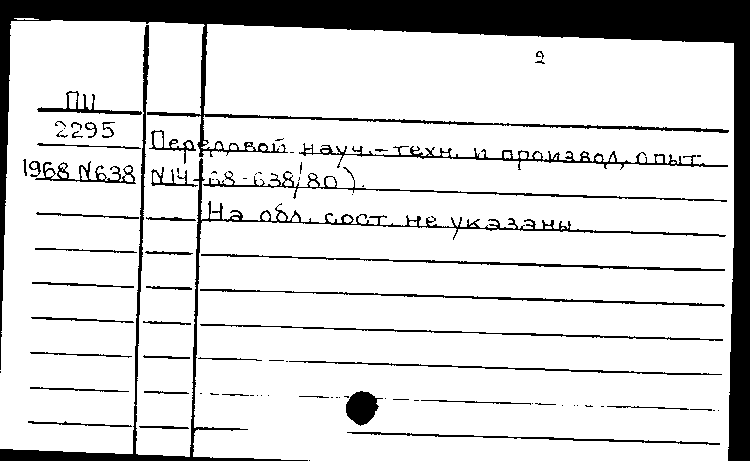 2
ПII
2295
Передовой науч.-техн. и производ. опыт.
1968 N638 N14-68-638/80).
На обл. сост. не указаны.